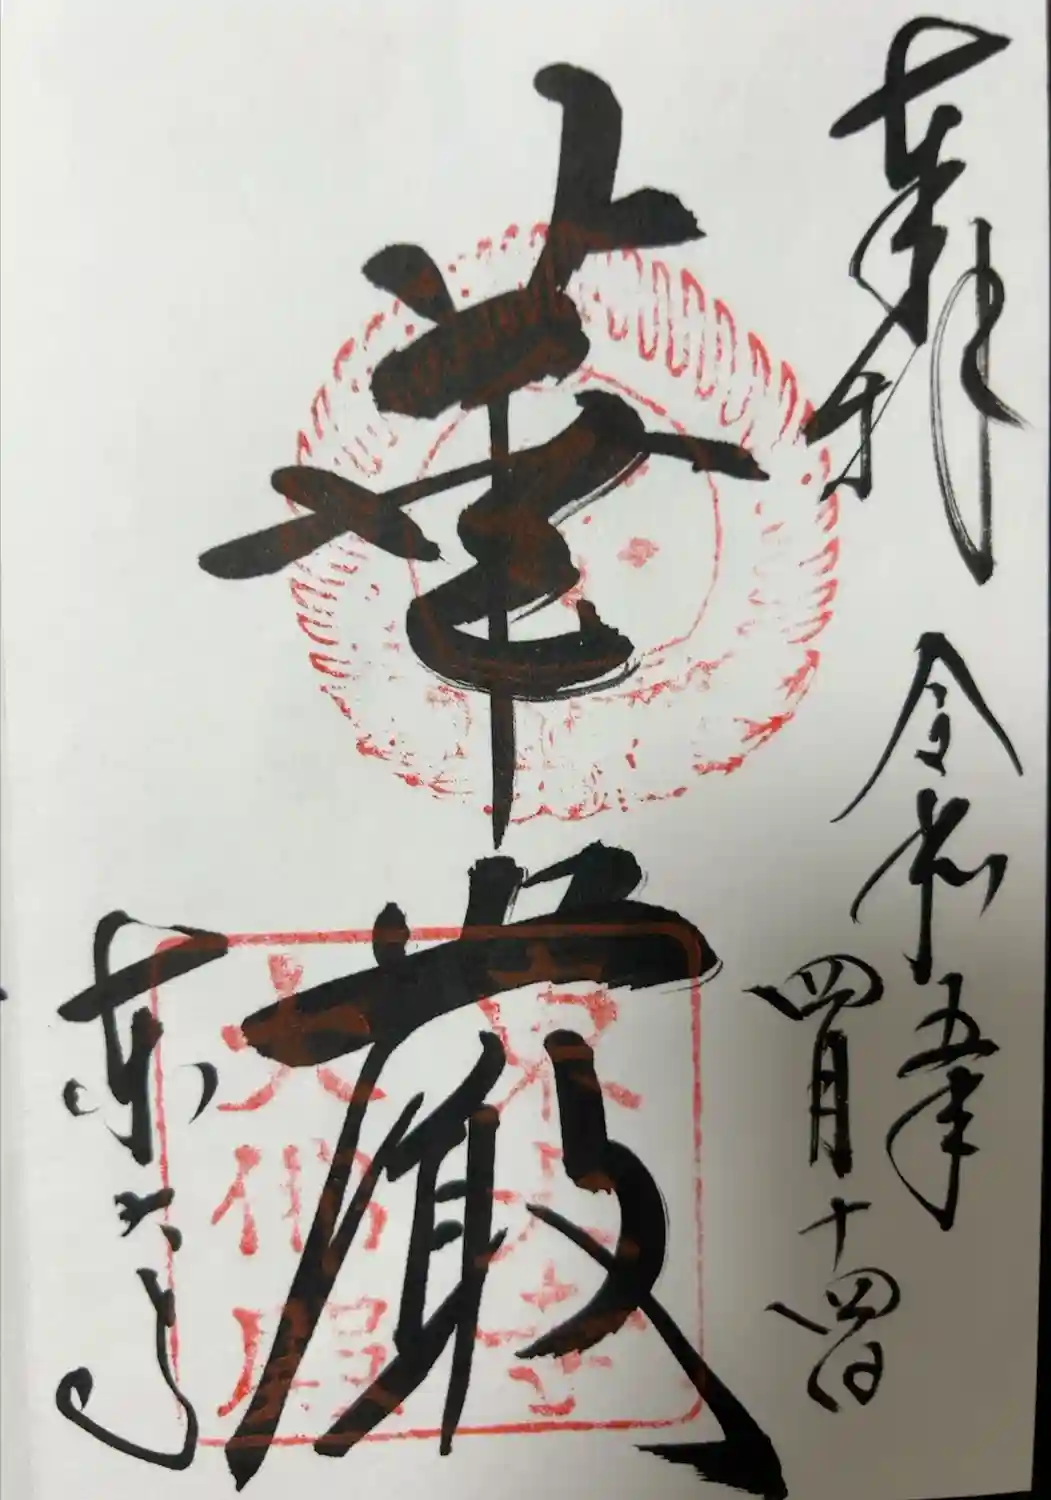 奉拝
令和五年
四月十四日
華厳
東大寺
東大寺
大仏殿